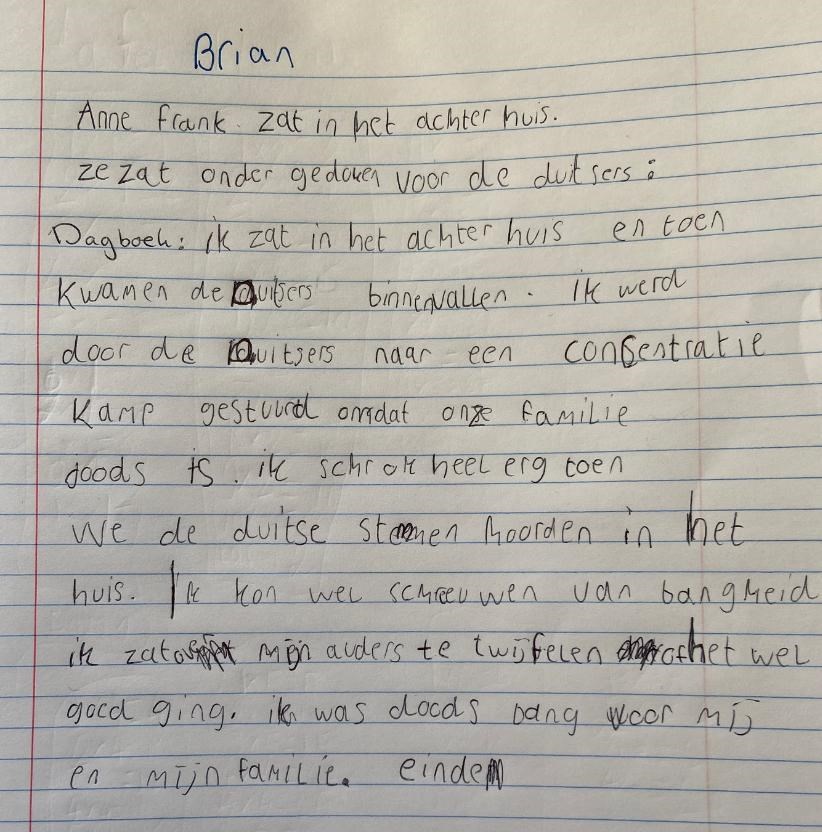 Brian
Anne frank. zat in het achter huis.
ze zat onder gedoken voor de duitsers:
Dagboek: ik zat in het achter huis en toen
Kwamen de Duitsers binnenvallen. ik werd
door de Duitsers naar een consentratie
Kamp gestuurd omdat onze familie
joods is. ik schrok heel erg toen
We de duitse stemmen hoorden in het
huis. Ik kon wel schreeuwen van bangheid
ik zat mijn auders te twijfelen of het wel
goed ging. ik was doods bang voor mij
en mijn familie. einde